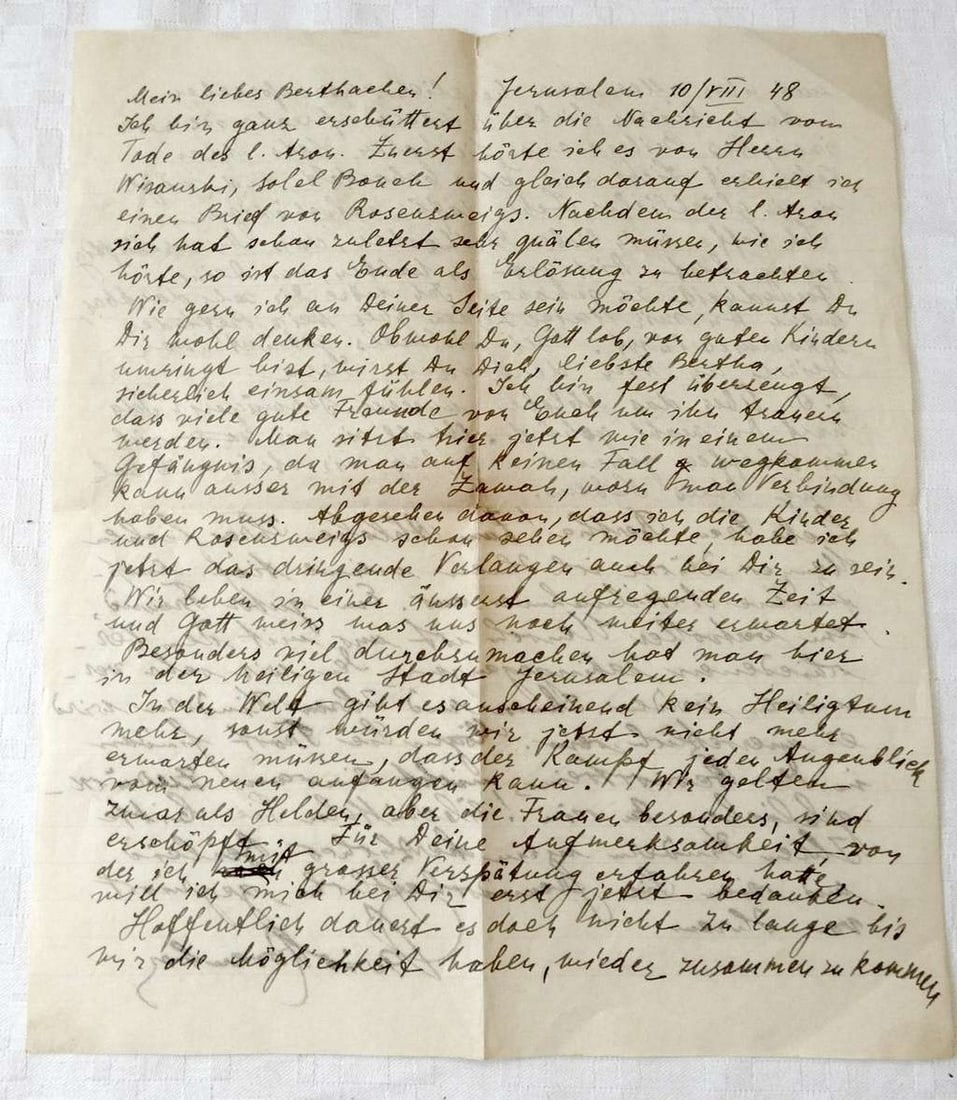 Mein liebes Berthachen! Jerusalem 10/VIII 48
Ich bin ganz erschüttert über die Nachricht vom
Tode des l. Aron. Zuerst hörte ich es von Herrn
Wisanski, Solel Boneh und gleich darauf erhielt ich
einen Brief von Rosensweigs. Nachdem der l. Aron
sich hat schon zuletzt sehr quälen müssen, wie ich
hörte, so ist das Ende als Erlösung zu betrachten.
Wie gern ich an Deiner Seite sein möchte, kannst Du
Dir wohl denken. Obwohl Du, Gott lob, von guten Kindern
umringt bist, wirst Du Dich, liebste Bertha,
sicherlich einsam fühlen. Ich bin fest überzeugt,
dass viele gute Freunde von Euch um ihn trauern
werden. Man sitzt hier jetzt wie in einem
Gefängnis, da man auf keinen Fall wegkommen
kann ausser mit der, wozu man Verbindung
haben muss. Abgesehen davon, dass ich die Kinder
und Rosensweigs schon sehen möchte, habe ich
jetzt das dringende Verlangen auch bei Dir zu sein.
Wir leben in einer äusserst aufregenden Zeit
und Gott weiss was uns noch weiter erwartet.
Besonders viel durchzumachen hat man hier
in der heiligen Stadt Jerusalem.
In der Welt gibt es anscheinend kein Heiligtum
mehr, sonst würden wir jetzt nicht mehr
erwarten müssen, dass der Kampf jeden Augenblick
vom neuen anfangen kann. Wir gelten
zwar als Helden, aber die Frauen besonders, sind
erschöpft. Für Deine Aufmerksamkeit von
der ich mit grosser Verspätung erfahren hatte,
will ich mich bei Dir erst jetzt bedanken.
Hoffentlich dauert es doch nicht zu lange bis
wir die Möglichkeit haben, wieder zusammen zu kommen